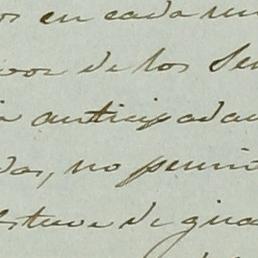 os en cada un
de los Se
anticipada
das, no permi
estuve de gua